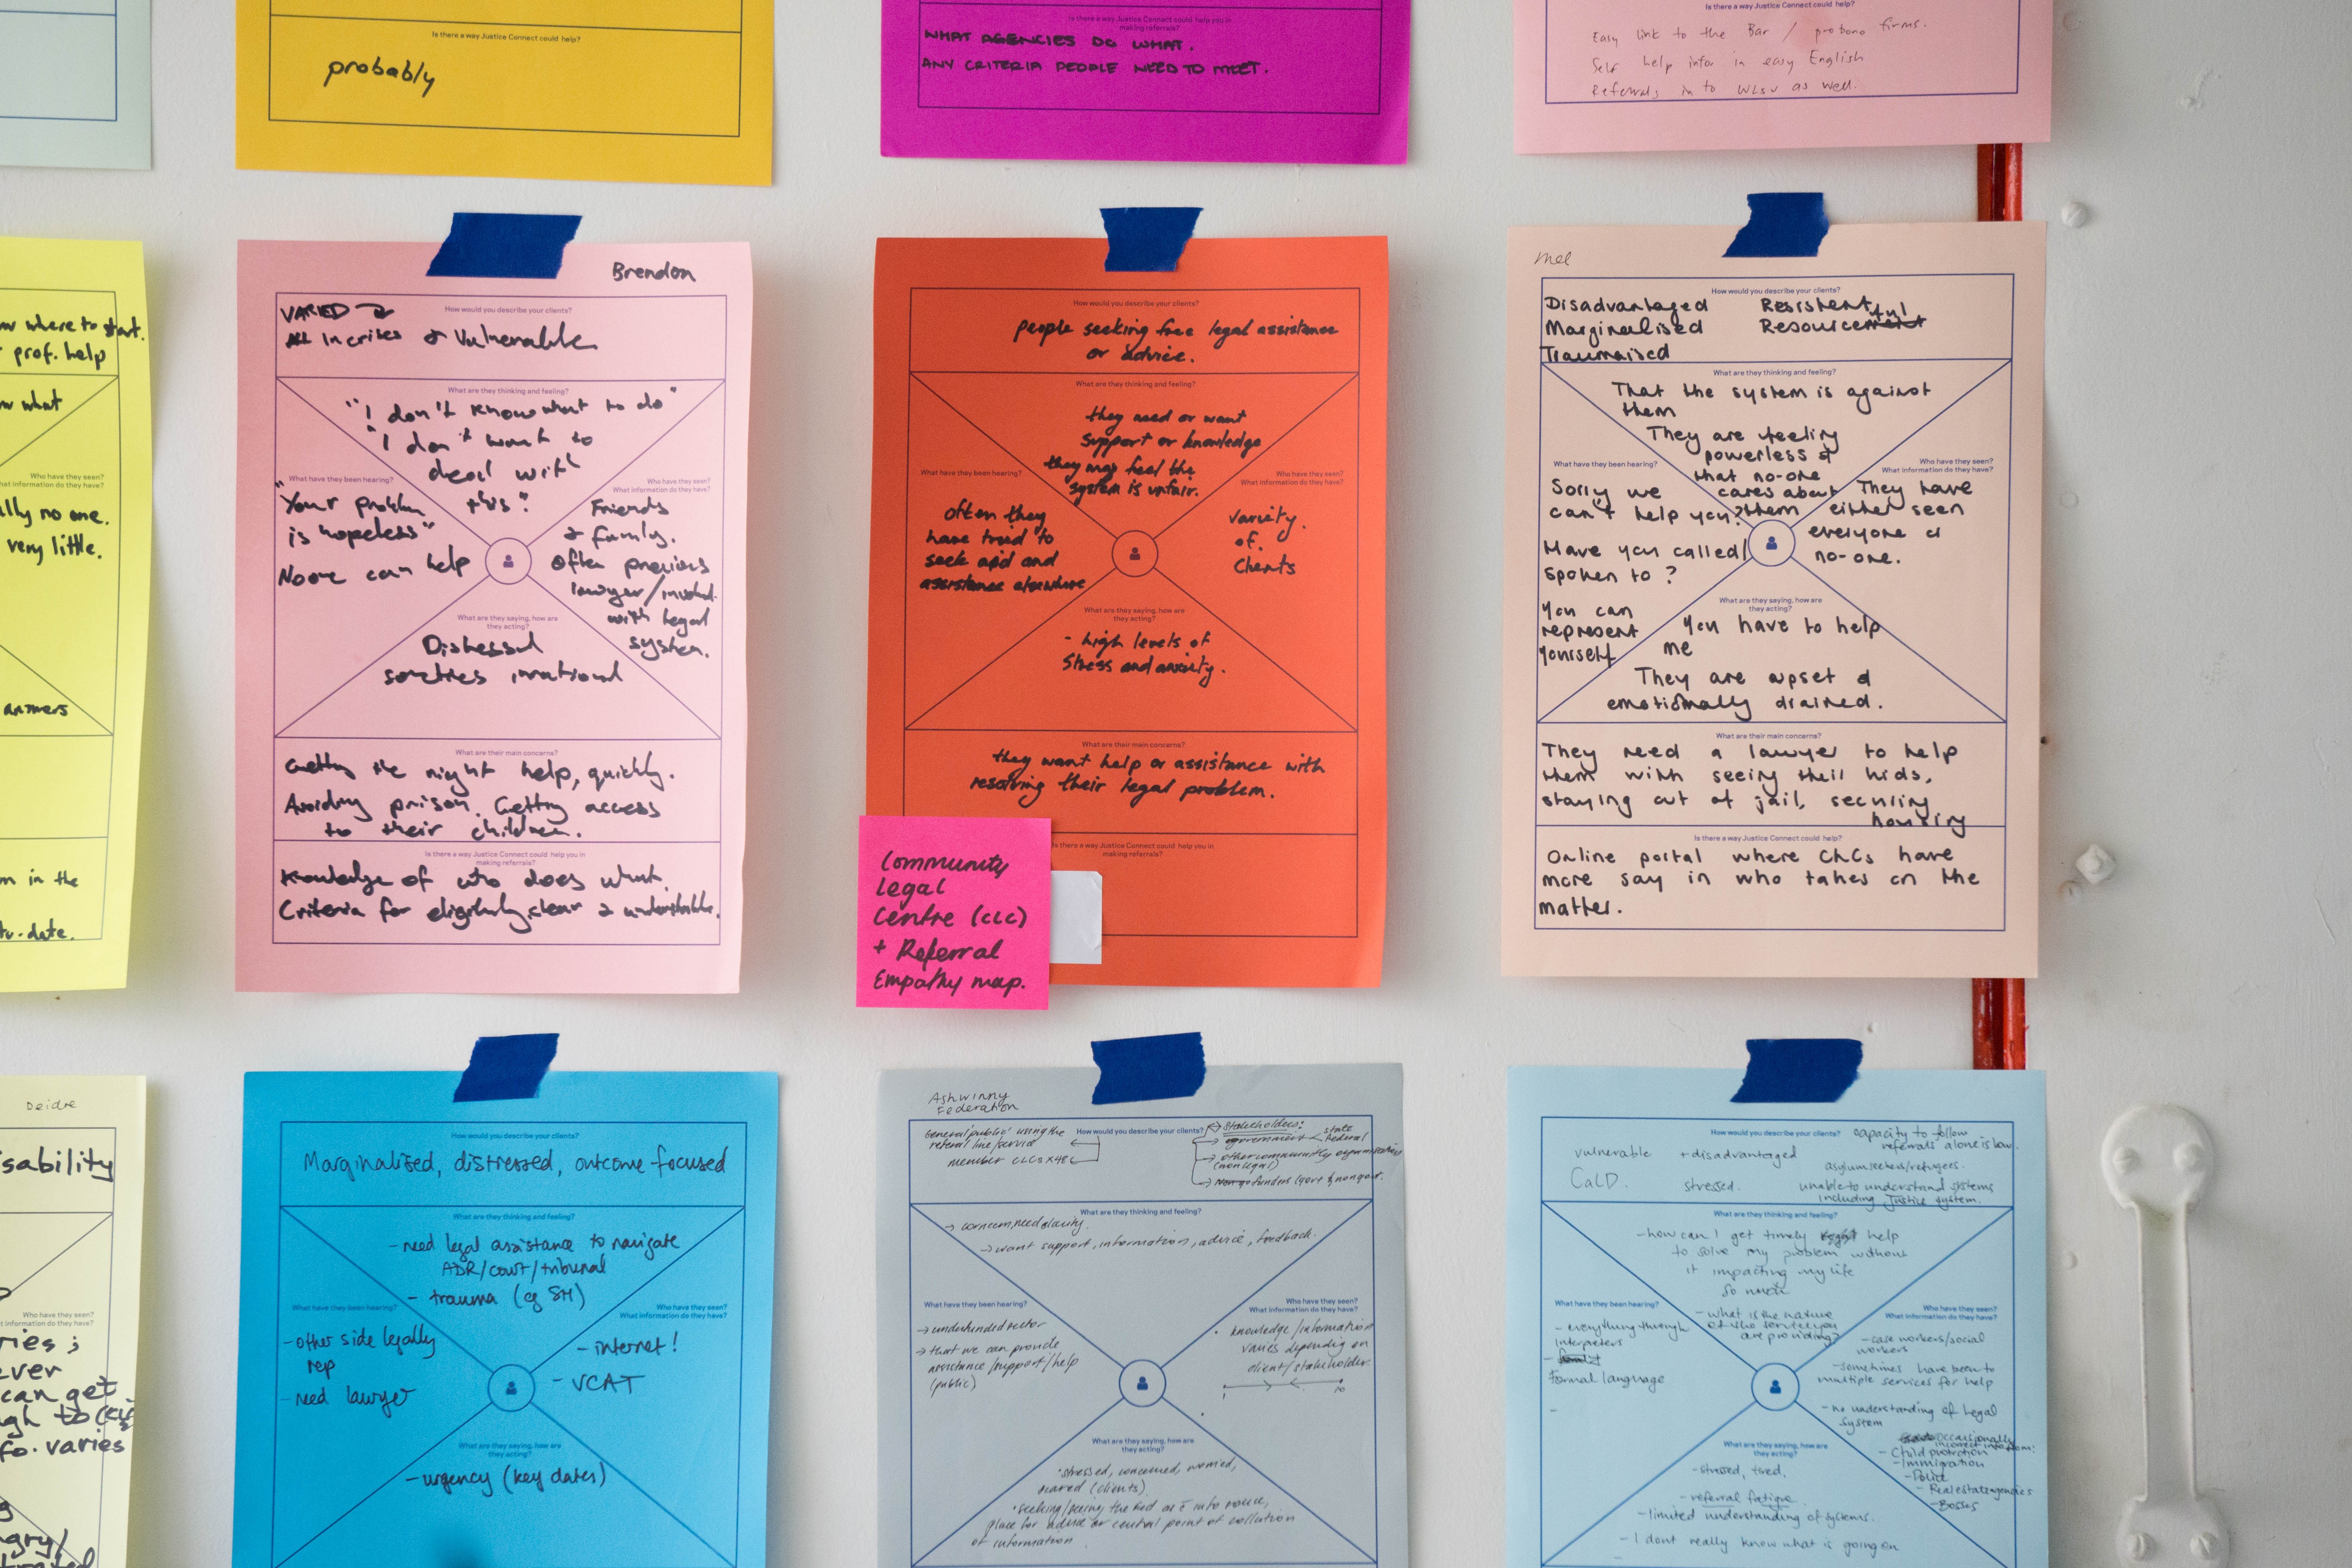 Is there a way Justice Connect could help?
probably
Is there a way Justice Connect could help you in
making referrals?
WHAT AGENCIES DO WHAT.
ANY CRITERIA PEOPLE NEED TO MEET.
Is there a way Justice Connect could help?
Easy link to the Bar / probono firms.
Self help infor in easy English
Referrals in to WLSV as well.
where to start.
prof. help
what
Who have they seen?
What information do they have?
lly no one.
very little.
answers
in the
date.
Brendon
How would you describe your clients?
VARIED
All In crises & Vulnerable
What are they thinking and feeling?
"I don't know what to do"
"I don't want to
deal with
this."
What have they been hearing?
"Your problem
is hopeless"
Noone can help
Who have they seen?
What information do they have?
Friends
& family.
Often previous
lawyer/involved
with legal
system.
What are they saying, how are
they acting?
Distressed
irrational
What are their main concerns?
Getting the right help, quickly.
Avoiding prison. Getting access
to their children.
Is there a way Justice Connect could help you in
making referrals?
Knowledge of who does what.
Criteria for eligibility, clear &
How would you describe your clients?
people seeking free legal assistance
or advice.
What are they thinking and feeling?
they need or want
support or knowledge
they may feel the
system is unfair.
What have they been hearing?
often they
have tried to
seek aid and
assistance elsewhere
Who have they seen?
What information do they have?
variety
of
clients
What are they saying, how are
they acting?
- high levels of
stress and anxiety.
What are their main concerns?
they want help or assistance with
resolving their legal problem.
Is there a way Justice Connect could help you in
making referrals?
Community
Legal
Centre (CLC)
+ Referral
Empathy map.
Mel
How would you describe your clients?
Disadvantaged Resistent
Marginalised Resourceful
Traumaised
What are they thinking and feeling?
That the system is against
them
They are feeling
powerless &
that no-one
cares about
them
What have they been hearing?
Sorry we
can't help you?
Have you called/
spoken to?
You can
represent
yourself
Who have they seen?
What information do they have?
They have
either seen
everyone or
no-one.
What are they saying, how are
they acting?
You have to help
me
They are upset &
emotionally drained.
What are their main concerns?
They need a lawyer to help
them with seeing their kids,
staying out of jail, securing
housing
Is there a way Justice Connect could help?
Online portal where CLCs have
more say in who takes on the
matter.
Deidre
sability
Who have they seen?
What information do they have?
ries;
ever
can get
varies
How would you describe your clients?
Marginalised, distressed, outcome focused
What are they thinking and feeling?
- need legal assistance to navigate
ADR/court/tribunal
- trauma (eg SH)
What have they been hearing?
- other side legally
rep
- need lawyer
Who have they seen?
What information do they have?
- internet!
- VCAT
What are they saying, how are
they acting?
- urgency (key dates)
Ashwinny
Federation
How would you describe your clients?
'General public' using the
referral line/service
member CLCs x48
Stakeholders:
government
state
federal
other community organisations
(non legal)
funders (govt & nongovt.
What are they thinking and feeling?
→ concern, need clarity.
→ want support, information, advice, feedback.
What have they been hearing?
→ underfunded sector
→ that we can provide
assistance/support/help
(public)
Who have they seen?
What information do they have?
knowledge/information
varies depending on
client/stakeholder.
1 10
What are they saying, how are
they acting?
• stressed, concerned, worried,
scared (clients)
place for advice or central point of collation
of information
How would you describe your clients?
vulnerable + disadvantaged
CaLD. stressed.
capacity to follow
referrals alone is low.
asylum seekers/refugees.
unable to understand systems
including Justice system.
What are they thinking and feeling?
- how can I get timely help
to solve my problem without
it impacting my life
so much
- what is the nature
of the service you
are providing?
What have they been hearing?
- everything through
interpreters
Formal language
Who have they seen?
What information do they have?
- case workers/social
workers
- sometimes have been to
multiple services for help
- no understanding of legal
system
occasionally
incorrect info from:
- Child protection
- Immigration
- Police
- Real estate agencies
- Bosses
What are they saying, how are
they acting?
- stressed, tired.
- referral fatigue.
- limited understanding of systems.
- I dont really know what is going on